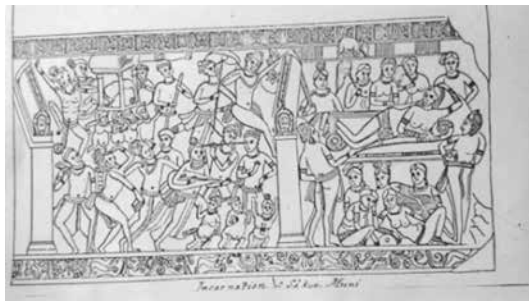 Incarnation of Sákya Muni